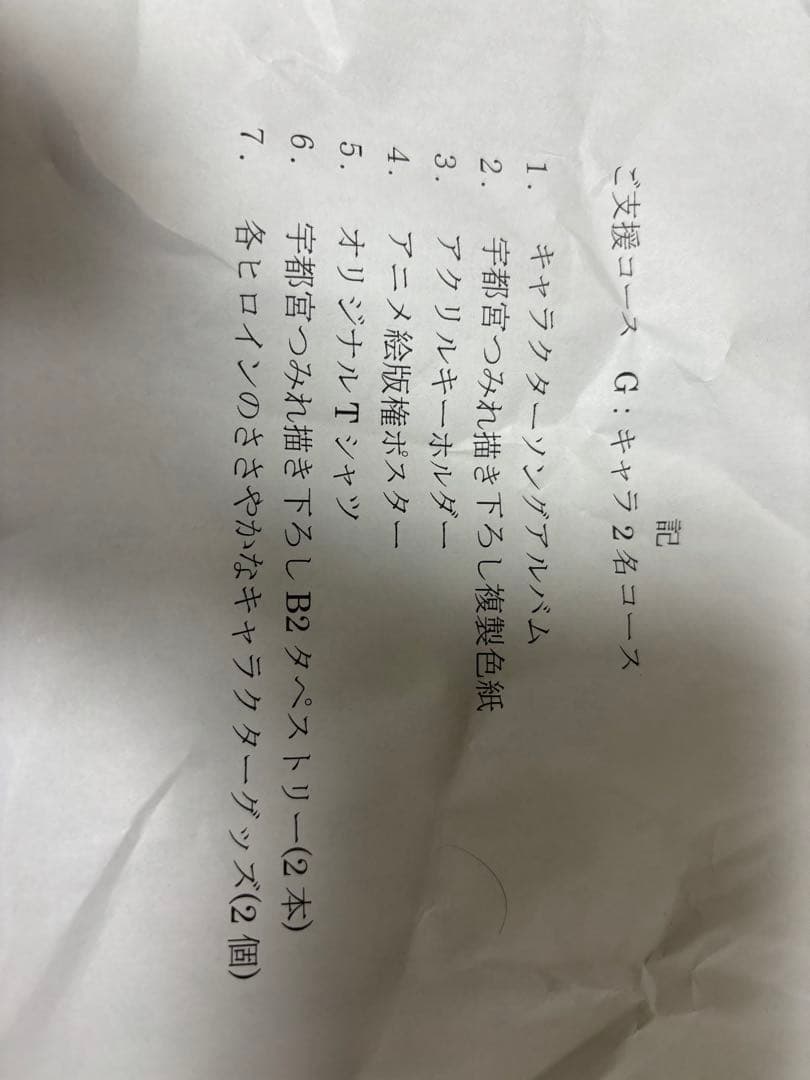 記
ご支援コース G：キャラ2名コース
1. キャラクターソングアルバム
2. 宇都宮つみれ描き下ろし複製色紙
3. アクリルキーホルダー
4. アニメ絵版権ポスター
5. オリジナルTシャツ
6. 宇都宮つみれ描き下ろしB2タペストリー(2本)
7. 各ヒロインのささやかなキャラクターグッズ(2個)